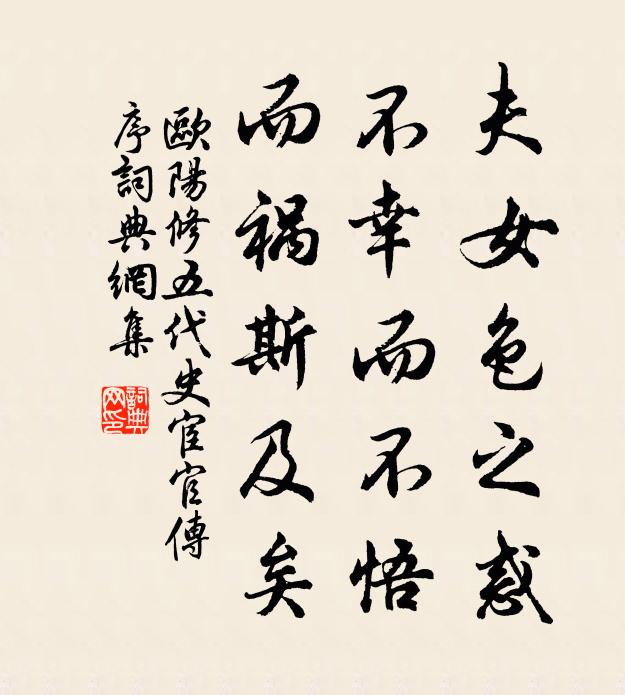 夫女色之惑
不幸而不悟
而祸斯及矣
歐陽修五代史宦官傳
序詞典網集
詞典
网印